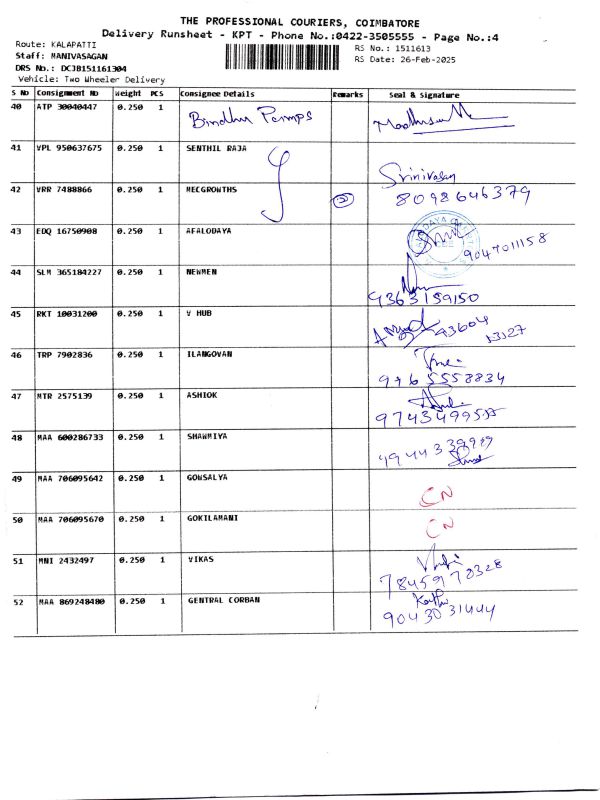 THE PROFESSIONAL COURIERS, COIMBATORE
Delivery Runsheet - KPT - Phone No.:0422-3505555 - Page No.:4
Route: KALAPATTI
RS No.: 1511613
Staff: MANIVASAGAN
RS Date: 26-Feb-2025
DRS No.: DCJB151161304
Vehicle: Two Wheeler Delivery
S No Consignment No Weight PCS Consignee Details Remarks Seal & Signature
40 ATP 30040447 0.250 1 Bindhu Pamps
41 VPL 950637675 0.250 1 SENTHIL RAJA Srinivasan
42 VRR 7488866 0.250 1 MECGROWTHS 2 8098646379
43 EDQ 16750908 0.250 1 AFALODAYA 9047011158
44 SLM 365184227 0.250 1 NEWMEN 9363159150
45 RKT 10031200 0.250 1 V HUB 93604
13127
46 TRP 7902836 0.250 1 ILANGOVAN 9765558834
47 MTR 2575139 0.250 1 ASHIOK
48 MAA 600286733 0.250 1 SHANMIYA
49 MAA 706095642 0.250 1 GOWSALYA CN
50 MAA 706095670 0.250 1 GOKILAMANI CN
51 MNI 2432497 0.250 1 VIKAS 7845970328
52 MAA 869248480 0.250 1 GENTRAL CORBAN 9043031444